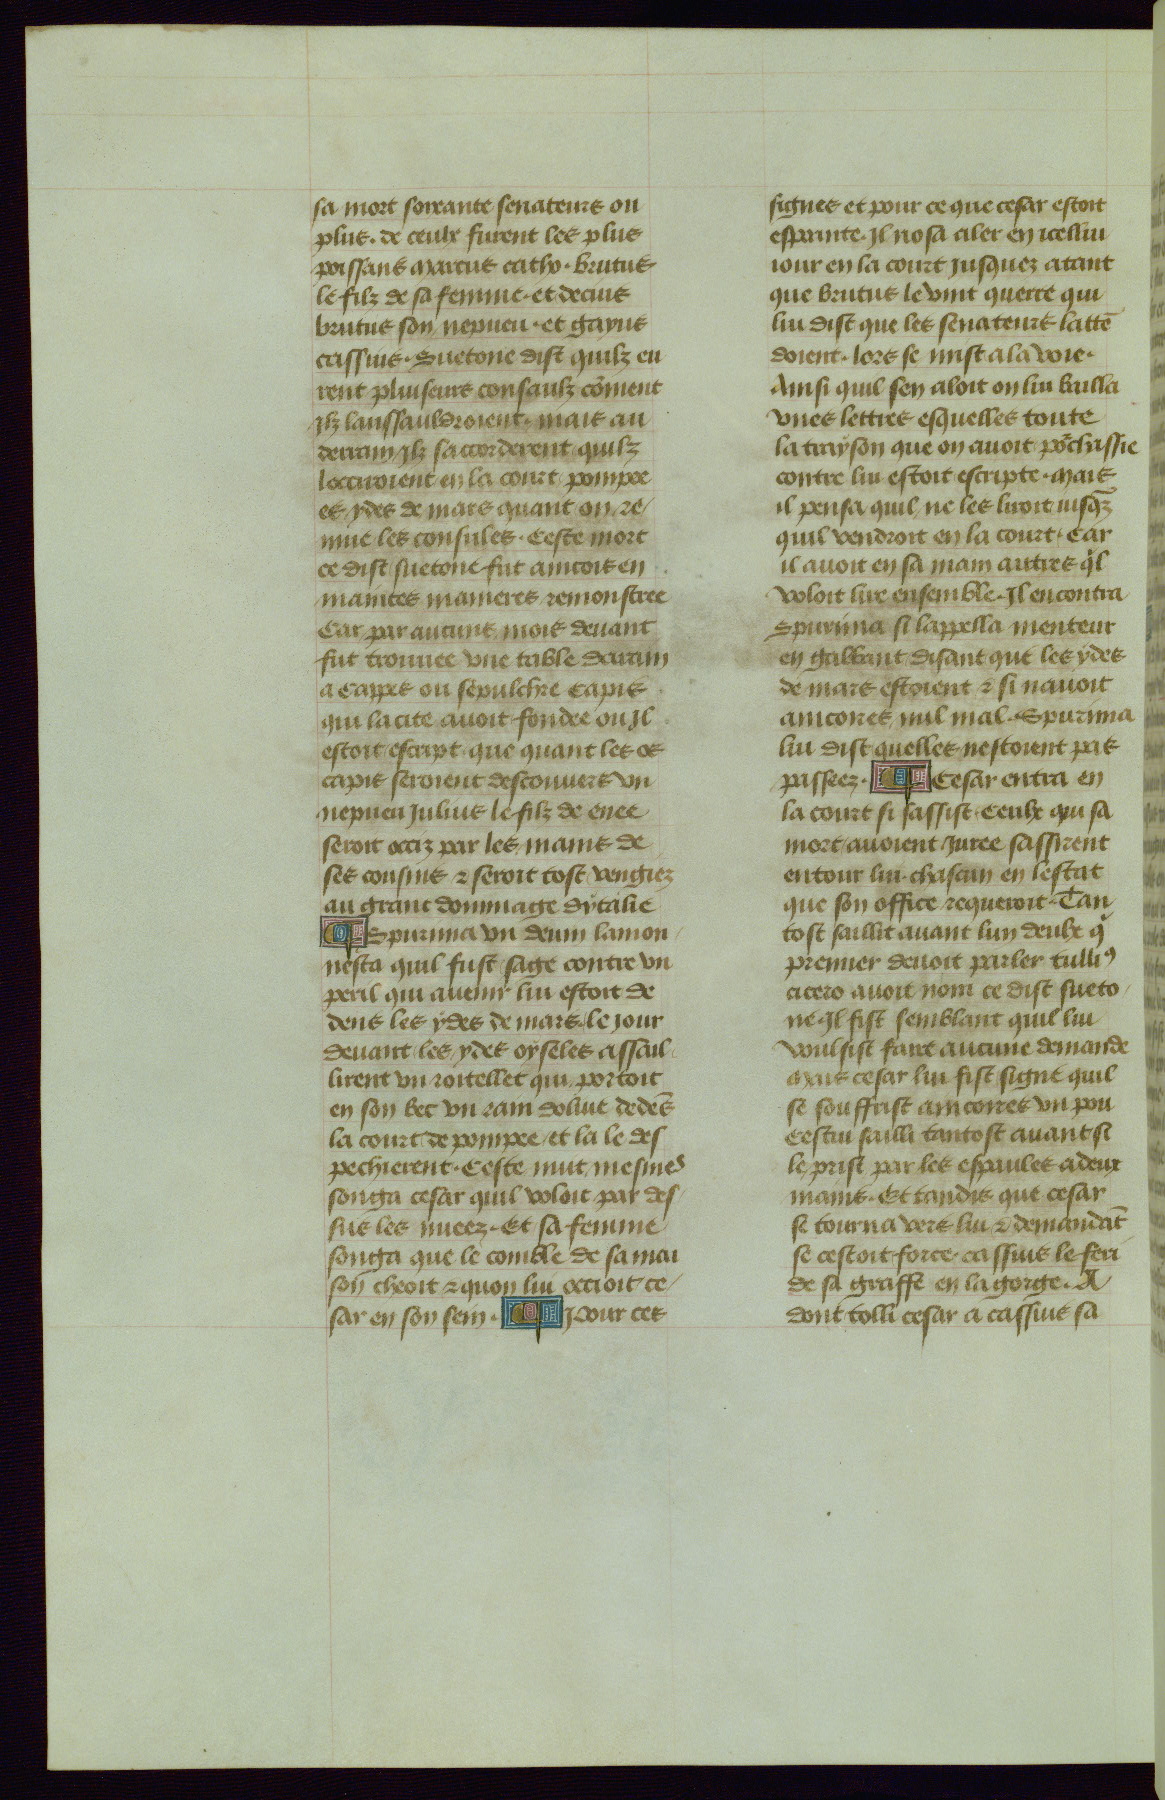 sa mort soixante senateurs ou
plus. de ceulx furent les plus
poissans marcus catho. brutus
le filz de sa femme. et decius
brutus son nepueu. et gayus
cassius. Suetone dist quilz eu
rent pluiseurs consaulz cōment
ilz lanssauldroient. mais au
derrain ilz saccorderent quilz
locciroient en la court pompee
es ydes de mars quant on re/
mue les consules. Ceste mort
ce dist suetone fut aincois en
maintes manieres remonstree
Car par aucuns mois deuant
fut trouuee vne table darrain
a Cappes ou sepulchre Capis
qui la cite auoit fondee ou Jl
estoit escript que quant les os
capis seroient descouuers vn
nepueu Julius le filz de enee
seroit occiz par les mains de
ses cousins & seroit tost vengiez
au grant dommage dytalie
Spurina vn deuin lamon
nesta quil fust sage contre vn
peril qui auenir lui estoit de
dens les ydes de mars. le jour
deuant les ydes oyseles assail
lirent vn roitellet qui portoit
en son bec vn rain doliue dedēs
la court de pompee et la le des
pechierent. Ceste nuit mesmes
songa cesar quil voloit par des/
sus les nueez. Et sa femme
songa que le comble de sa mai
son cheoit & quon lui occioit ce/
sar en son sein. Pour ces
signes et pour ce que cesar estoit
esprainte. Jl nosa aler en icellui
iour en la court Jusquez atant
que brutus le vint querre qui
lui dist que les senateurs lattē
doient. lors se mist a la voie.
Ainsi quil sen aloit on lui bailla
vnes lettres esquelles toute
la trayson que on auoit pōchassie
contre lui estoit escripte. Mais
il pensa quil ne les liroit iusqz
quil vendroit en la court. Car
il auoit en sa main autres ql
voloit lire ensemble. Jl encontra
Spurina si lappella menteur
en gabbant disant que les ydes
de mars estoient & si nauoit
aincores nul mal. Spurina
lui dist quelles nestoient pas
passeez. Cesar entra en
la court si sassist. Ceulx qui sa
mort auoient Juree sassirent
entour lui. chascun en lestat
que son office requeroit. Tan
tost saillit auant lun deulx q
premier deuoit parler tulli9
cicero auoit nom ce dist sueto/
ne. Jl fist semblant quil lui
voulsist faire aucune demande
Mais cesar lui fist signe quil
se souffrist aincores vn pou
Cestui sailli tantost auant si
le prist par les espaules a deux
mains. Et tandis que cesar
se tourna vers lui & demandāt
se cestoit force. cassius le feri
de sa graffe en la gorge. A
dont tolli cesar a cassius sa